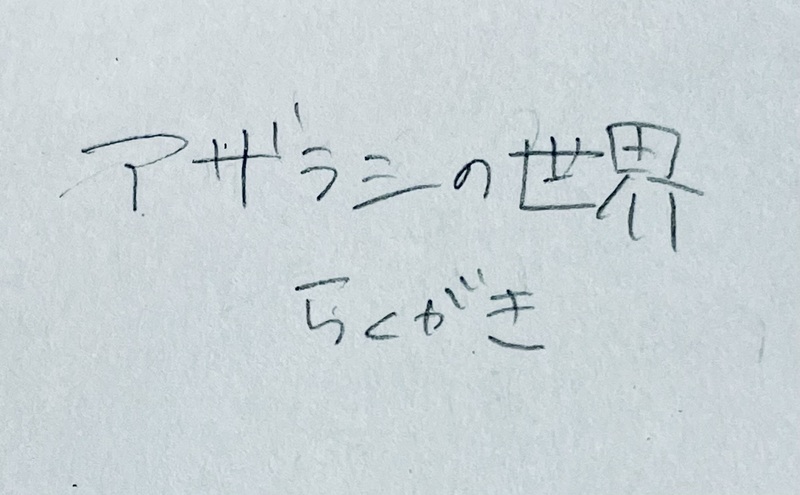 アザラシの世界
らくがき